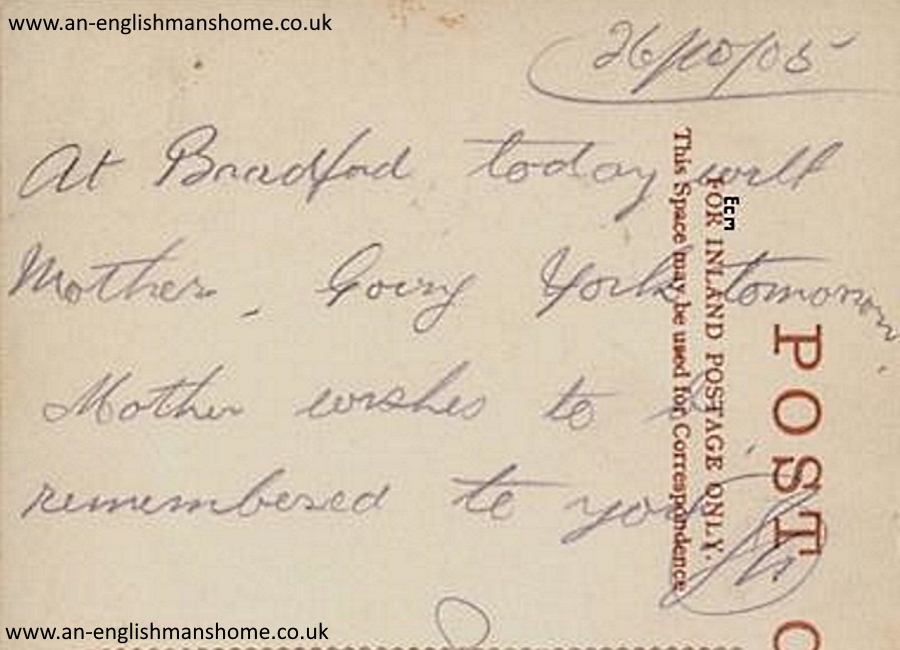 www.an-englishmanshome.co.uk
26/10/05
At Bradford today will
Mother. Going York tomorrow.
Mother wishes to be
remembered to you
This Space may be used for Correspondence
FOR INLAND POSTAGE ONLY.
Ecm
POST C
www.an-englishmanshome.co.uk